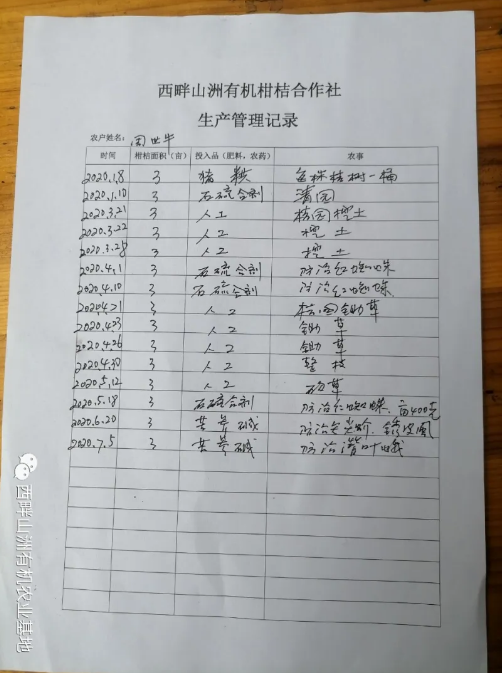 西畔山洲有机柑桔合作社
生产管理记录
农户姓名：周世华
时间 柑桔面积（亩） 投入品（肥料，农药） 农事
2020.1.8 3 猪粪 每株桔树一桶
2020.1.10 3 石硫合剂 清园
2020.3.21 3 人工 桔园挖土
2020.3.22 3 人工 挖土
2020.3.28 3 人工 挖土
2020.4.1 3 石硫合剂 防治红蜘蛛
2020.4.10 3 石硫合剂 防治红蜘蛛
2020.4.21 3 人工 桔园锄草
2020.4.23 3 人工 锄草
2020.4.26 3 人工 锄草
2020.4.30 3 人工 整枝
2020.5.12 3 人工 草
2020.5.18 3 石硫合剂 防治红蜘蛛，亩400克
2020.6.20 3 苦参碱 防治 锈
2020.7.5 3 苦参碱 防治潜叶蛾
西畔山洲有机农业基地